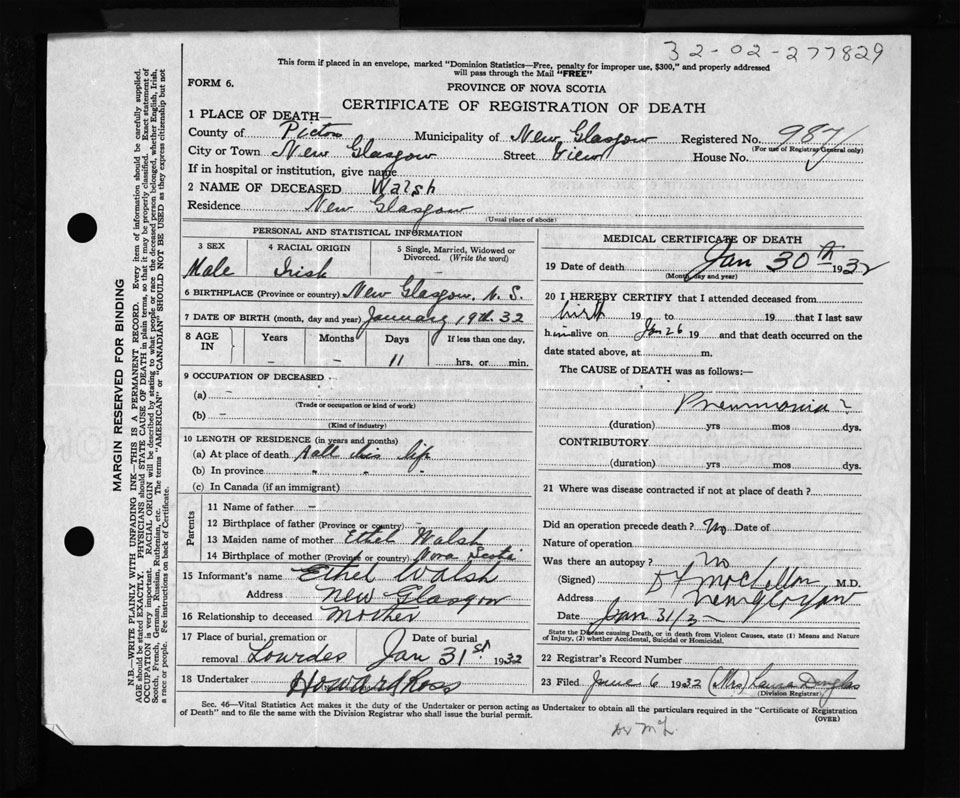 32-02-277829
This form if placed in an envelope, marked "Dominion Statistics—Free, penalty for improper use, $300," and properly addressed
will pass through the Mail "FREE"
FORM 6.
PROVINCE OF NOVA SCOTIA
CERTIFICATE OF REGISTRATION OF DEATH
1 PLACE OF DEATH—
County of Pictou Municipality of New Glasgow Registered No. 987
(For use of Registrar General only)
City or Town New Glasgow Street View House No.
If in hospital or institution, give name
2 NAME OF DECEASED Walsh
Residence New Glasgow
(Usual place of abode)
PERSONAL AND STATISTICAL INFORMATION
3 SEX 4 RACIAL ORIGIN 5 Single, Married, Widowed or
Divorced. (Write the word)
Male Irish
6 BIRTHPLACE (Province or country) New Glasgow, N.S.
7 DATE OF BIRTH (month, day and year) January 19th. 32
8 AGE IN Years Months Days If less than one day,
– – 11 hrs. or min.
9 OCCUPATION OF DECEASED
(a) –
(Trade or occupation or kind of work)
(b) –
(Kind of industry)
10 LENGTH OF RESIDENCE (in years and months)
(a) At place of death all his life
(b) In province " " "
(c) In Canada (if an immigrant)
Parents
11 Name of father –
12 Birthplace of father (Province or country) –
13 Maiden name of mother Ethel Walsh
14 Birthplace of mother (Province or country) Nova Scotia
15 Informant's name Ethel Walsh
Address New Glasgow
16 Relationship to deceased Mother
17 Place of burial, cremation or Date of burial
removal Lourdes Jan 31st 1932
18 Undertaker Howard Ross
MEDICAL CERTIFICATE OF DEATH
19 Date of death Jan 30th 1932
(Month, day and year)
20 I HEREBY CERTIFY that I attended deceased from
birth 19 to 19 that I last saw
him alive on Jan 26 19 and that death occurred on the
date stated above, at m.
The CAUSE of DEATH was as follows:—
Pneumonia?
(duration) yrs mos dys.
CONTRIBUTORY
(duration) yrs mos dys.
21 Where was disease contracted if not at place of death?
Did an operation precede death? No Date of
Nature of operation
Was there an autopsy? No
(Signed) M.D.
Address New Glasgow
Date Jan 31/32
State the Disease causing Death, or in death from Violent Causes, state (1) Means and Nature
of Injury, (2) whether Accidental, Suicidal or Homicidal.
22 Registrar's Record Number
23 Filed June 6 1932 (Mrs) Laura Douglas
(Division Registrar)
Sec. 46—Vital Statistics Act makes it the duty of the Undertaker or person acting as Undertaker to obtain all the particulars required in the "Certificate of Registration
of Death" and to file the same with the Division Registrar who shall issue the burial permit.
(OVER)
MARGIN RESERVED FOR BINDING
N.B.—WRITE PLAINLY WITH UNFADING INK—THIS IS A PERMANENT RECORD. Every item of information should be carefully supplied.
AGE should be stated EXACTLY. PHYSICIANS should STATE CAUSE OF DEATH in plain terms, so that it may be properly classified. Exact statement of
OCCUPATION is very important. RACIAL ORIGIN will be described by stating to what people or race the deceased person belonged, whether English, Irish,
Scotch, French, German, Russian, Ruthenian, etc. The terms "AMERICAN" or "CANADIAN" SHOULD NOT BE USED as they express citizenship but not
a race or people. Fee instructions on back of Certificate.